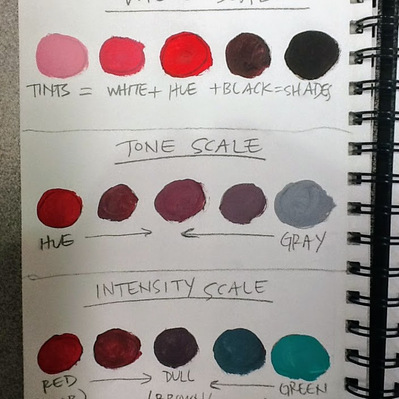 TINTS = WHITE + HUE + BLACK = SHADES
TONE SCALE
HUE GRAY
INTENSITY SCALE
RED DULL GREEN